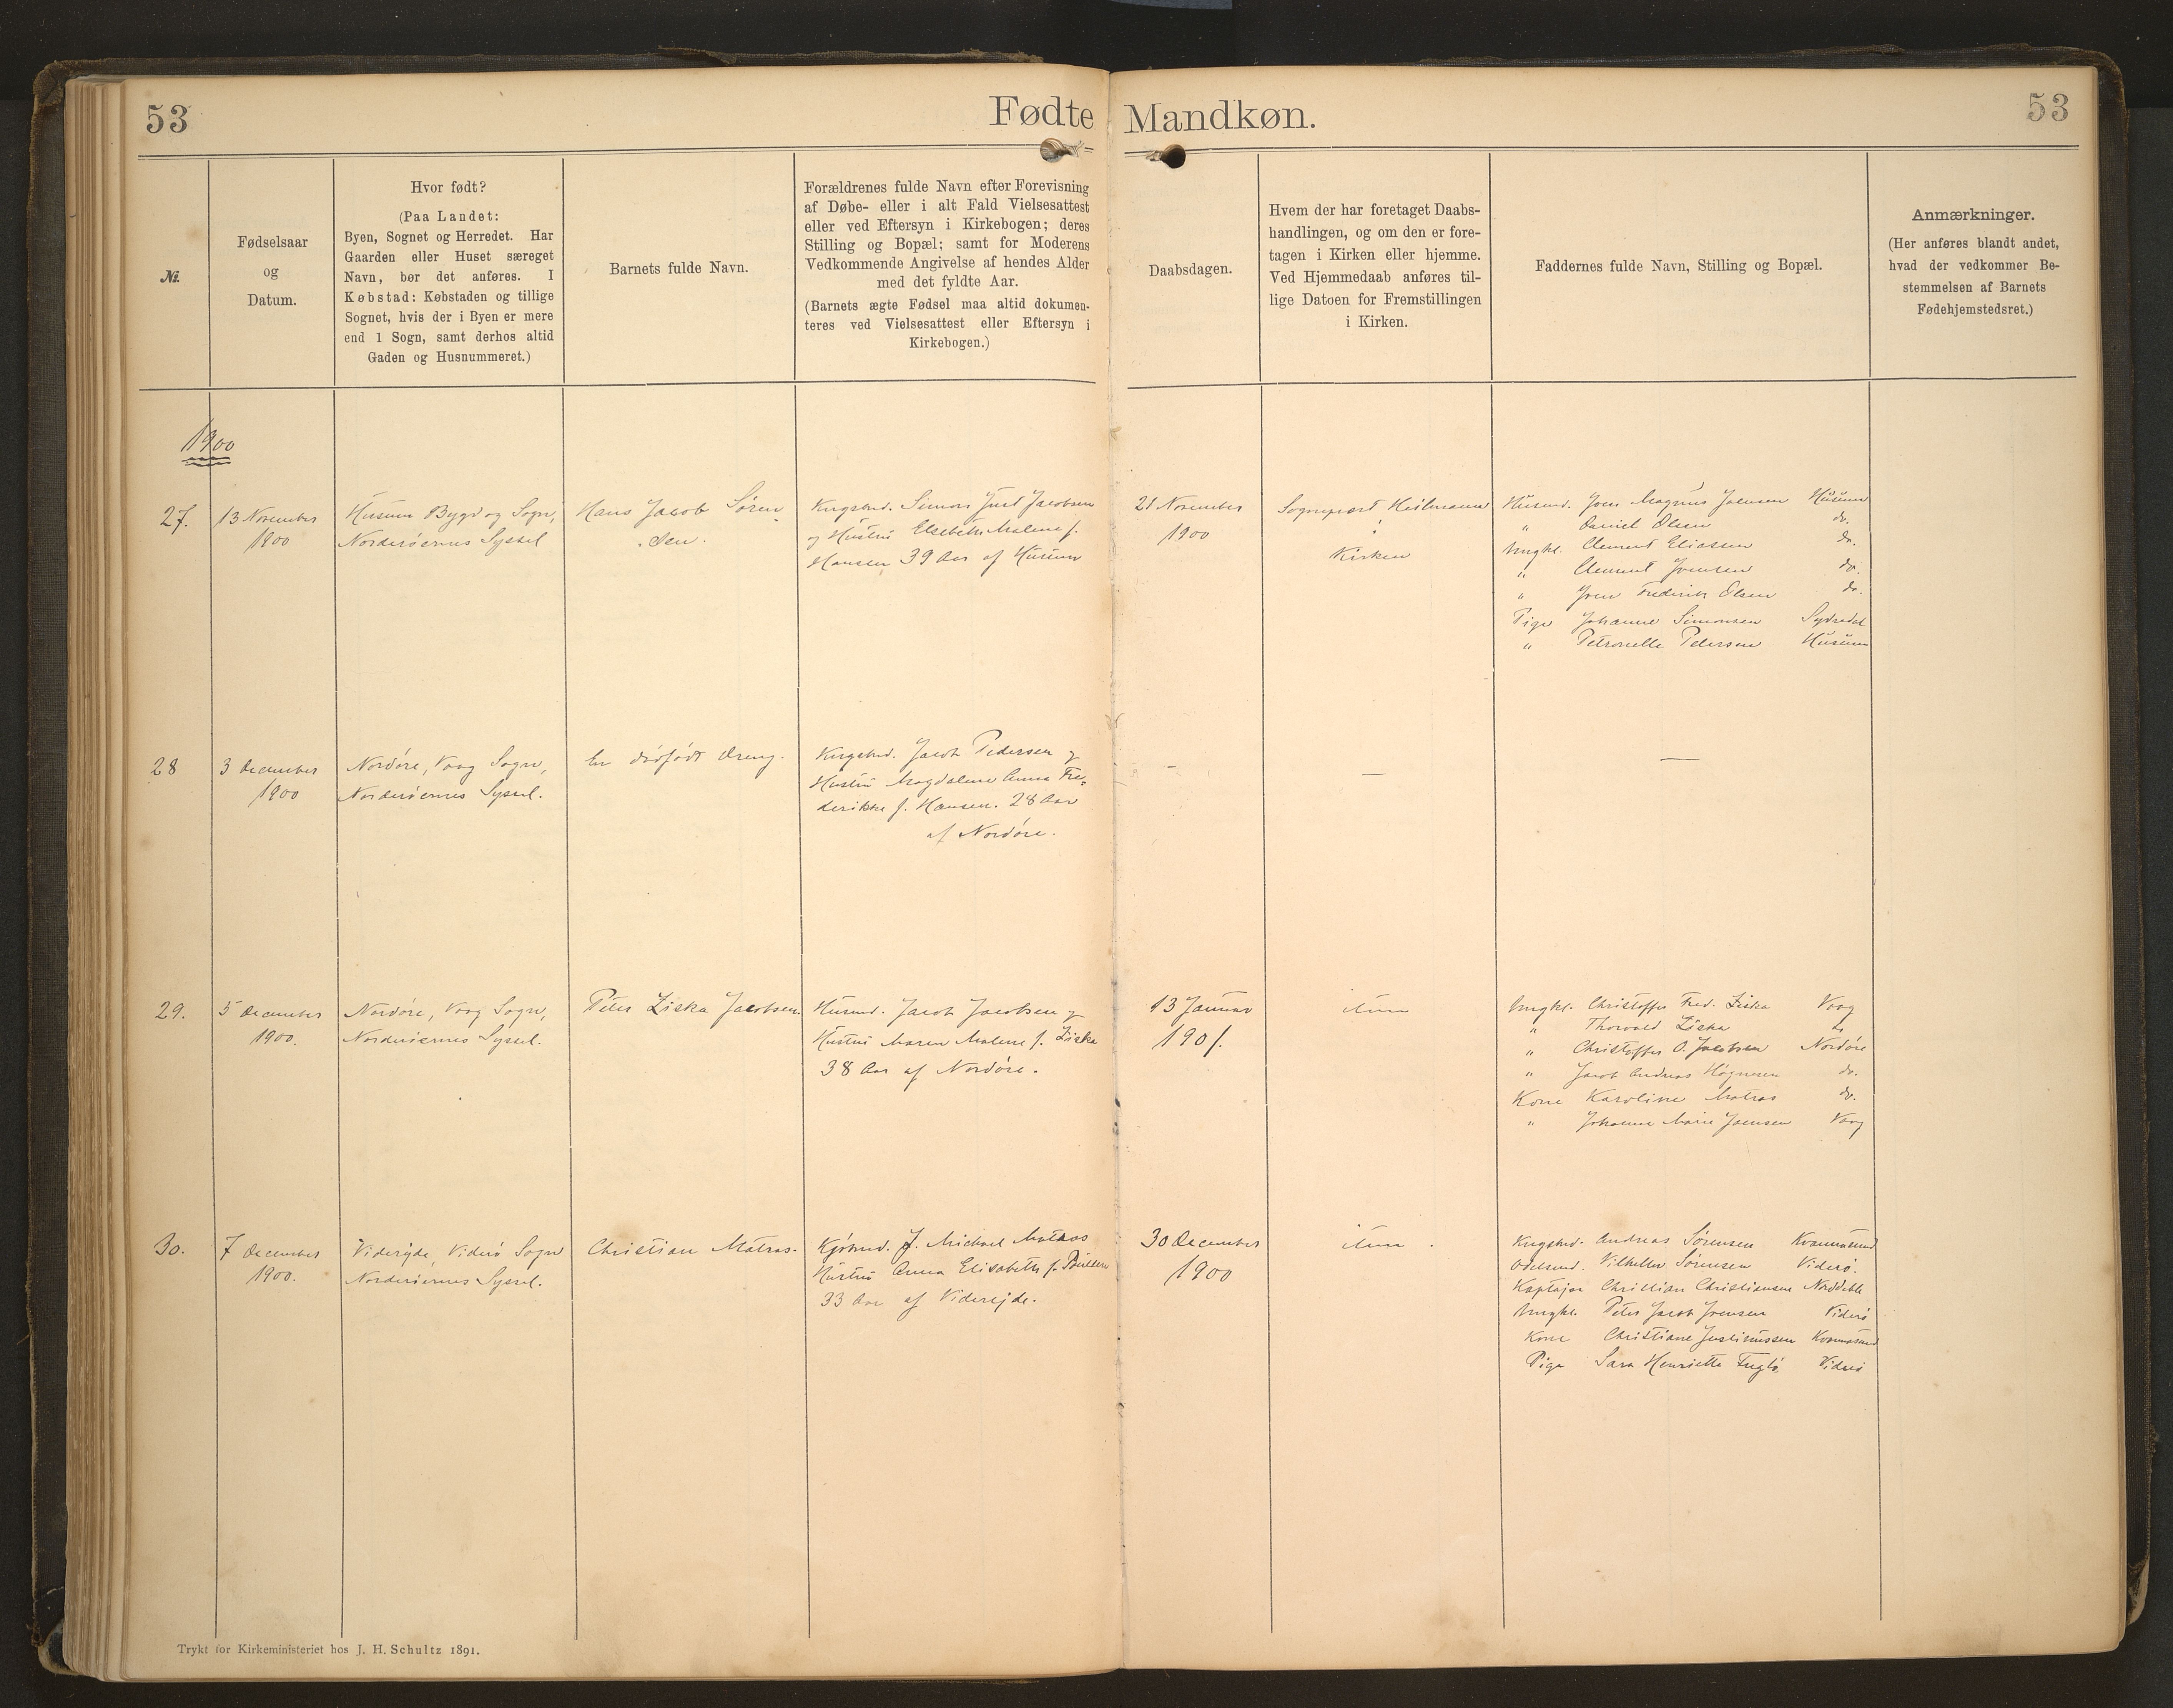 53
Fødte Mandkøn.
53
№
Fødselsaar
og
Datum.
Hvor født?
(Paa Landet:
Byen, Sognet og Herredet. Har
Gaarden eller Huset særeget
Navn, bør det anføres. I
Købstad: Købstaden og tillige
Sognet, hvis der i Byen er mere
end 1 Sogn, samt derhos altid
Gaden og Husnummeret.)
Barnets fulde Navn.
Forældrenes fulde Navn efter Forevisning
af Døbe- eller i alt Fald Vielsesattest
eller ved Eftersyn i Kirkebogen; deres
Stilling og Bopæl; samt for Moderens
Vedkommende Angivelse af hendes Alder
med det fyldte Aar.
(Barnets ægte Fødsel maa altid dokumen-
teres ved Vielsesattest eller Eftersyn i
Kirkebogen.)
Daabsdagen.
Hvem der har foretaget Daabs-
handlingen, og om den er fore-
tagen i Kirken eller hjemme.
Ved Hjemmedaab anføres til-
lige Datoen for Fremstillingen
i Kirken.
Faddernes fulde Navn, Stilling og Bopæl.
Anmærkninger.
(Her anføres blandt andet,
hvad der vedkommer Be-
stemmelsen af Barnets
Fødehjemstedsret.)
1900
27.
13 November
1900
Husum Bygd og Sogn,
Norderøernes Syssel
Hans Jacob Søren
sen.
Kngsbmd. Simon Juul Jacobsen
og Hustru Elsebeth Malene f.
Hansen 39 Aar af Husum
21 November
1900
Sognepræst Heilmann
i
Kirken
Husmd. Joen Magnus Joensen Husum
" Daniel Olsen do.
Ungkl. Clement Eliassen do.
" Clement Joensen do.
" Joen Frederik Olsen do.
Pige Johanne Simonsen Sydradal
" Petronelle Petersen Husum
28
3 December
1900
Nordøre, Vaag Sogn,
Norderøernes Syssel.
En dødfødt Dreng.
Kngsbmd. Jacob Pedersen og
Hustru Magdalene Anna Fre-
derikke f. Hansen. 28 Aar
af Nordøre.
–
—
—
29.
5 December
1900.
Nordøre, Vaag Sogn,
Norderøernes Syssel.
Peter Ziska Jacobsen.
Husmd. Jacob Jacobsen og
Hustru Maren Malene f. Ziska
38 Aar af Nordøre.
13 Januar
1901.
item
Ungkl. Christoffer Fred. Ziska Vaag
" Thorvald Ziska do
" Christoffer O. Jacobsen Nordøre
" Jacob Andreas Høgnesen do.
Kone Karoline Matras do.
" Johanne Marie Joensen Vaag
30.
7 December
1900.
Viderejde, Viderø Sogn
Norderøernes Syssel.
Christian Matras.
Kjøbmd. J. Michael Matras
Hustru Anna Elisabeth f. Poulsen
33 Aar af Viderejde.
30 December
1900
item .
Kngsbmd. Andreas Sørensen Kvannesund
Odelsmd. Vilhelm Sørensen Viderø.
Kaptajn Christian Christiansen Norddeble
Ungkl. Peter Jacob Joensen Viderø
Kone Christiane Justinussen Kvannesund
Pige Sara Henriette Fuglø Viderø
Trykt for Kirkeministeriet hos J. H. Schultz 1891.